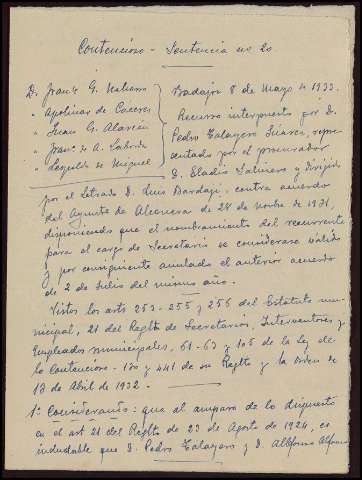 Contencioso - Sentencia nº 20.
D. Franco G.
" Apolinar de Cáceres
" Juan G. Alarcón
" Franco de A.
" Leopoldo de Miguel
Badajoz 8 de Mayo de 1933.
Recurso interpuesto por D.
Pedro Talayero Suárez, repre-
sentado por el procurador
D. Eladio Salinero y dirigido
por el Letrado D. Luis Bardají, contra acuerdo
del Aymto de Alconera de 28 de Novbre de 1931,
disponiendo que el nombramiento del recurrente
para el cargo de Secretario se considerase válido
y por consiguiente anulado el anterior acuerdo
de 2 de Julio del mismo año.
Vistos los arts 253 - 255 y 256 del Estatuto mu-
nicipal, 21 del Reglto de Secretarios, Interventores y
Empleados municipales, 61 - 63 y 105 de la Ley de
lo Contencioso - 130 y 441 de su Reglto y la Orden de
13 de Abril de 1932.
1º Considerando: que al amparo de lo dispuesto
en el art 21 del Reglto de 23 de Agosto de 1924, es
indudable que D. Pedro Talayero y D. Alfonso